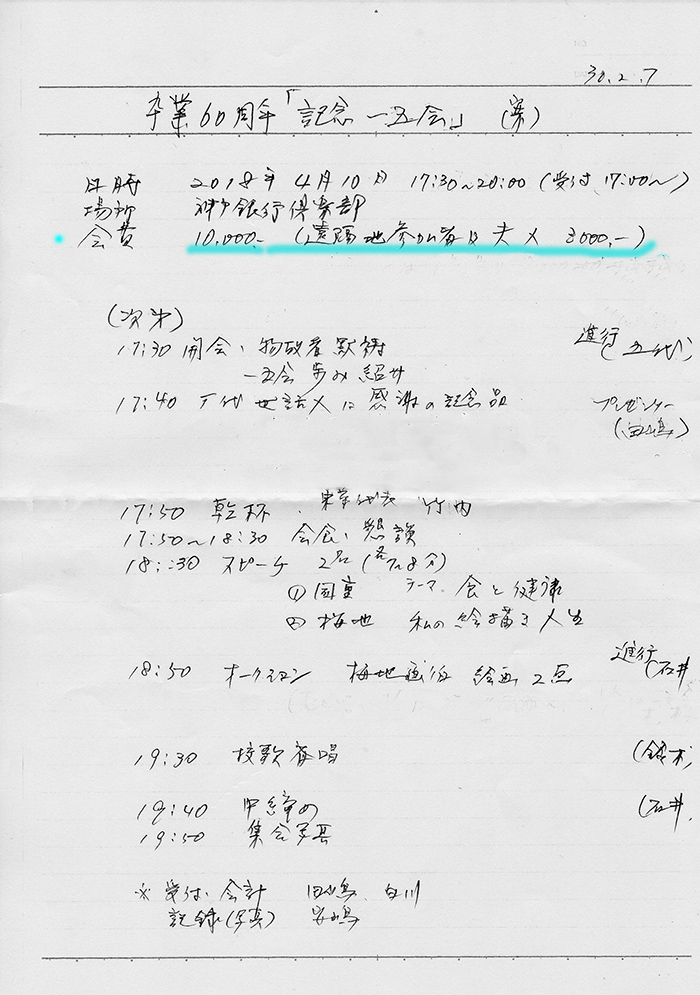 30.2.7
卒業60周年「記念一五会」(案)
日時 2018年4月10日 17:30~20:00 (受付17:00~)
場所 神戸銀行倶楽部
・会費 10,000.- (遠隔地参加者は夫々 3000.-)
(次第)
17:30 開会、物故者黙祷 進行(五代)
一五会歩み紹介
17:40 千代世話人に感謝の記念品 プレゼンター
(田嶋)
17:50 乾杯、東京代表 竹内
17:50~18:30 会食、懇談
18:30 スピーチ 2名(各7,8分)
① 国重 テーマ 食と健康
② 梅地 私の絵描き人生
18:50 オークション 梅地画伯 絵画2点 進行(石井
19:30 校歌斉唱 (鈴木)
19:40 中締め (石井.
19:50 集合写真
※ 受付、会計 田嶋、白川
記録(写真)